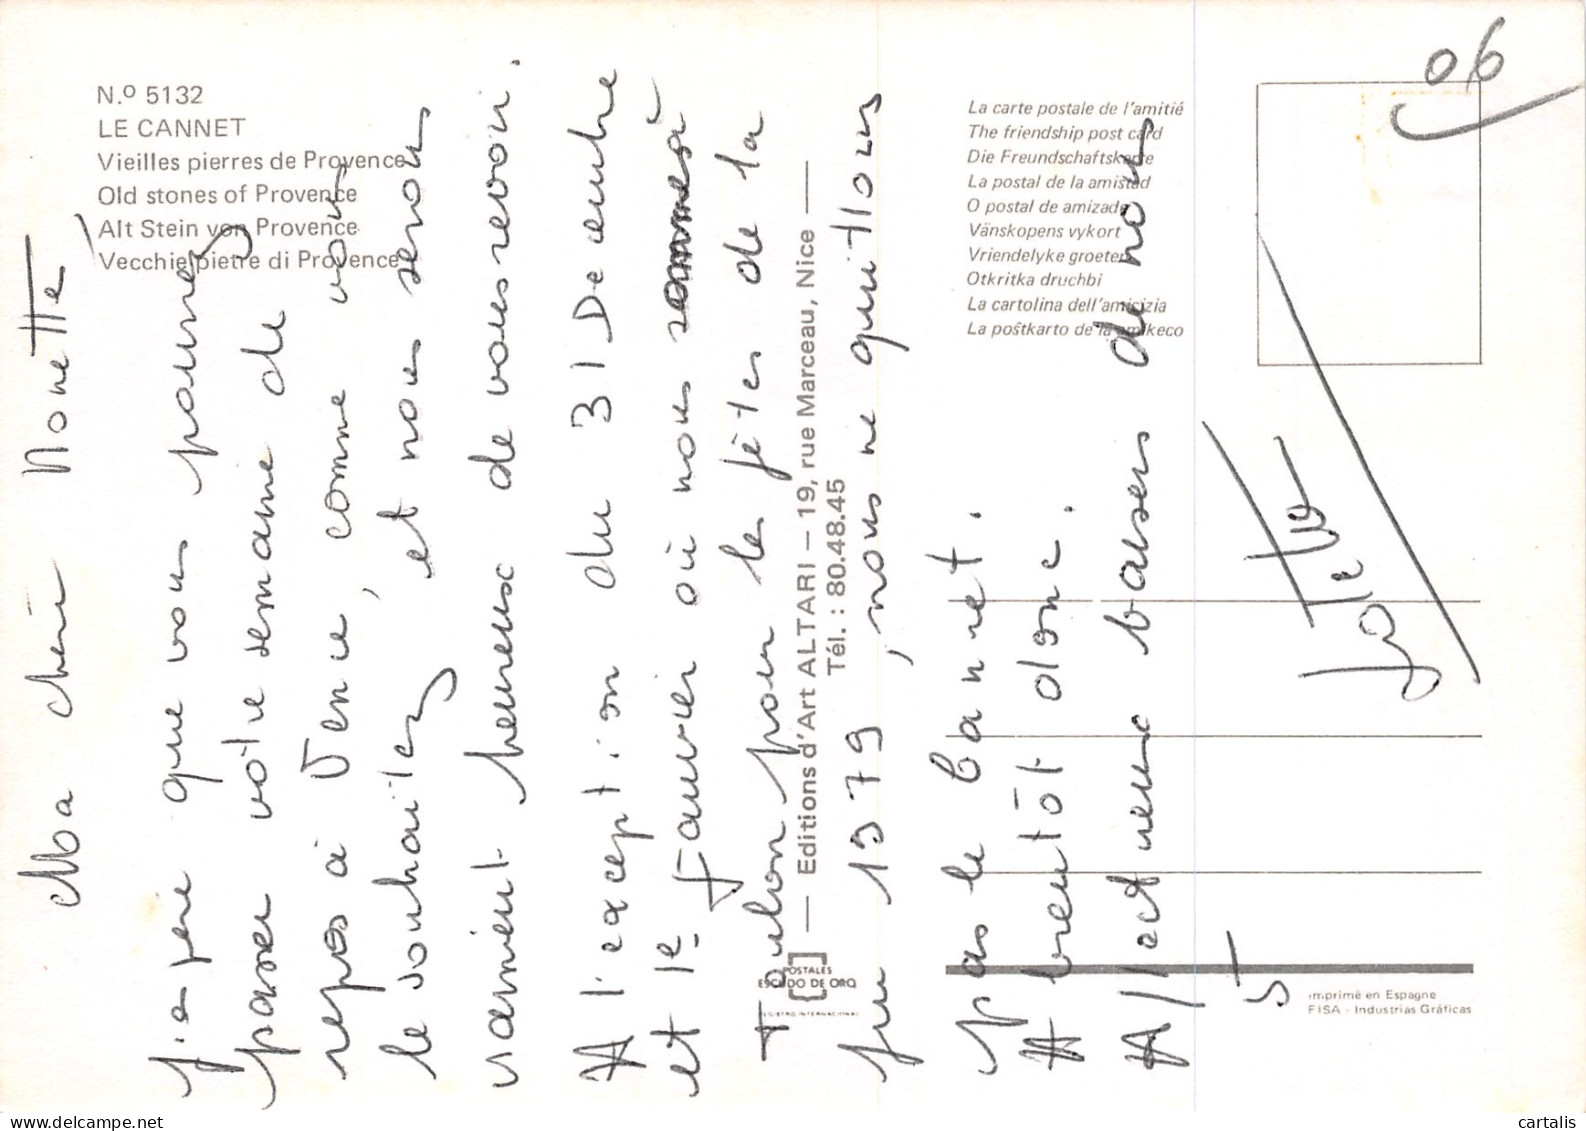 N.º 5132
LE CANNET
Vieilles pierres de Provence
Old stones of Provence
Alt Stein von Provence
Vecchie pietre di Provence
La carte postale de l'amitié
The friendship post card
Die Freundschaftskarte
La postal de la amistad
O postal de amizade
Vänskopens vykort
Vriendelyke groeten
Otkritka druchbi
La cartolina dell'amicizia
La poŝtkarto de la amikeco
06
Ma chère Nonette,
J'espère que vous pourrez
passer votre semaine de
repos à Vence, comme vous
le souhaitez, et nous serons
vraiment heureux de vous revoir.
A l'exception du 31 Décembre
et 1er Janvier où nous sommes à
Toulon pour les fêtes de la
fin 1979, nous ne quittons
pas le Cannet.
A bientôt donc.
Affectueux baisers de nous
5
— Editions d'Art ALTARI – 19, rue Marceau, Nice —
Tél. : 80.48.45
POSTALES
ESCUDO DE ORO
REGISTRO INTERNACIONAL
Imprimé en Espagne
FISA - Industrias Gráficas
cartalis